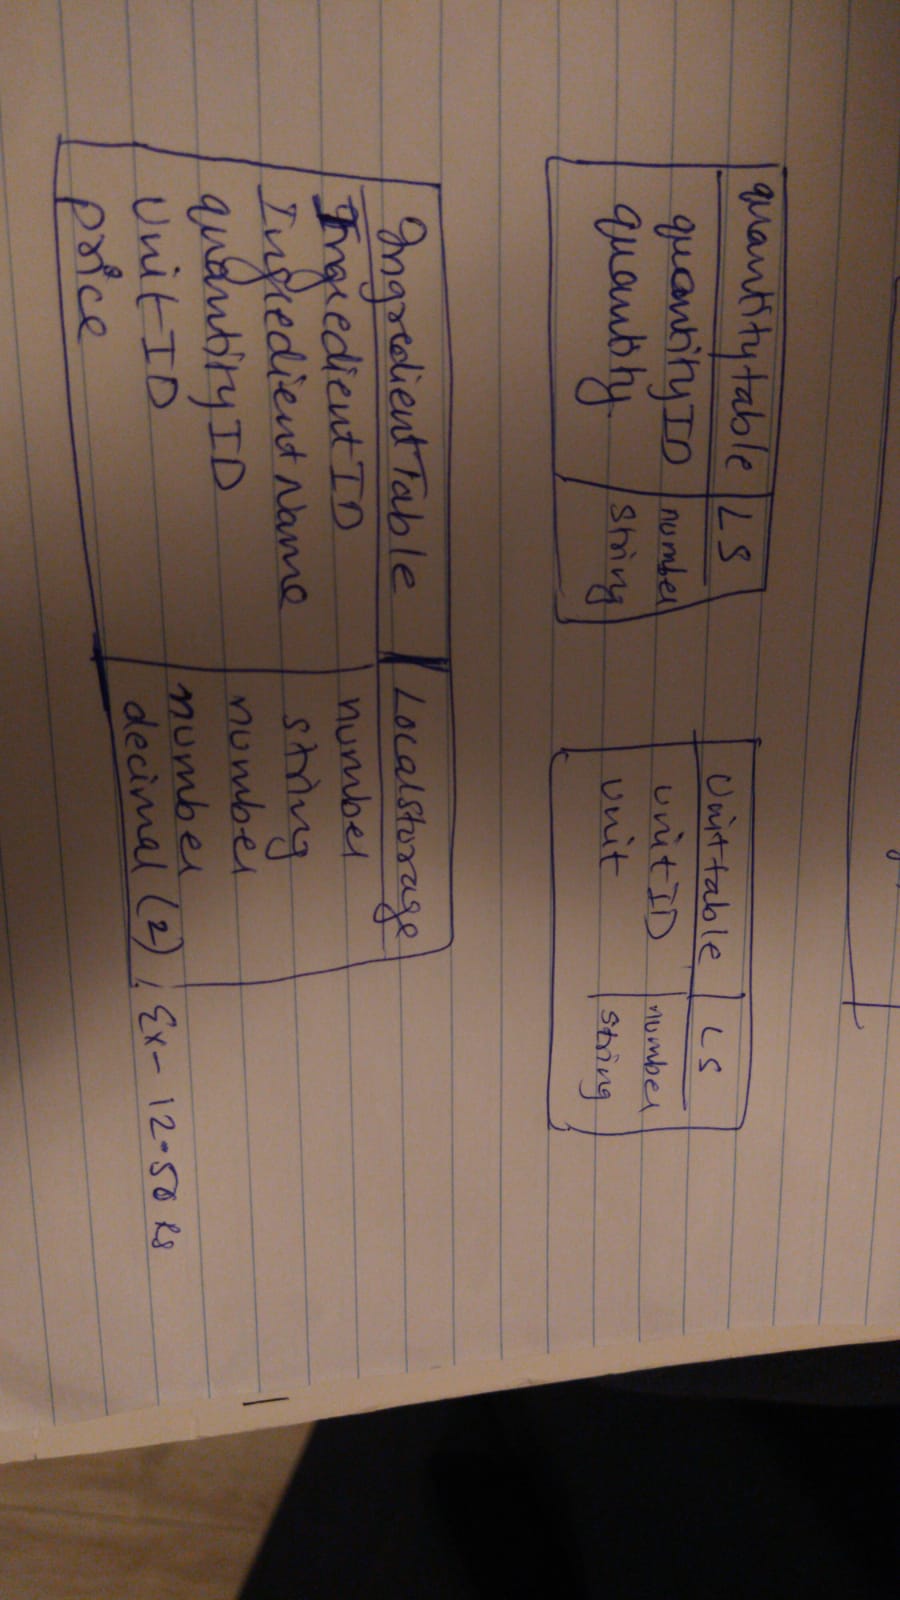 quantitytable | LS
quantityID number
quantity string
Unittable | LS
unitID number
unit string
IngredientTable | Localstorage
IngredientID number
Ingredient Name string
quantityID number
UnitID number
price decimal (2) ; Ex- 12.50 Rs